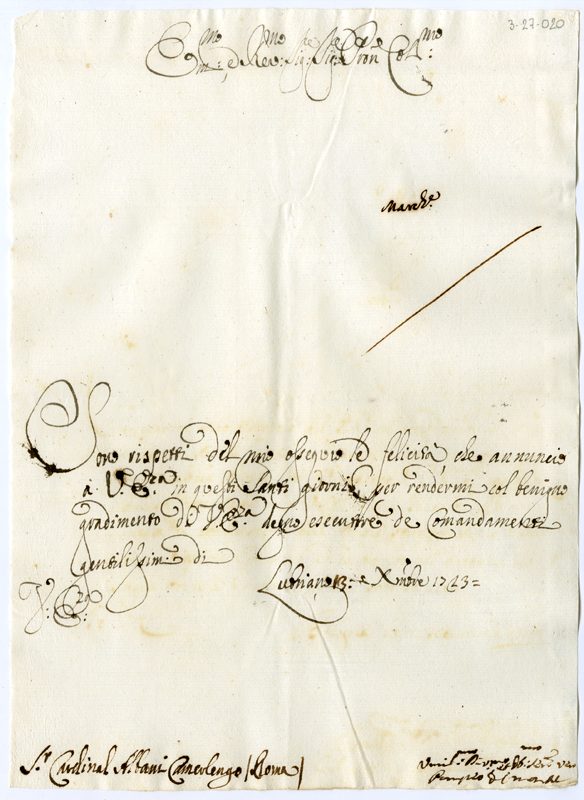 3-27-020
Em:mo e Rev:mo Sig:re Sig:re Pron Col:mo
March.e
Sono rispetti del mio ossequio le felicità che annuncio
a V. E.za in questi Santi giorni per rendermi col benigno
gradimento di V. E.za degno esecutore de Comandamenti
gentilissimi di
Lubriano 13 = Xmbre 1743 =
V. E.za
S.r Cardinal Albani Camerlengo / Roma /